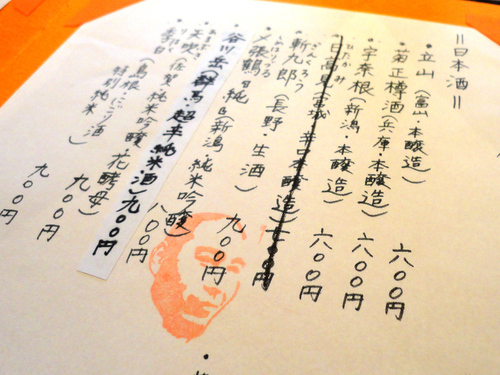 =日本酒=
・立山(富山・本醸造) 六〇〇円
・菊正樽酒(兵庫・本醸造) 六〇〇円
・宇奈根(新潟・本醸造) 六〇〇円
ひたかみ
・日高見(宮城 辛口本醸造)七〇〇円
ざんくろう
・斬九郎(長野・生酒) 九〇〇円
しめはりつる
・〆張鶴 純(新潟 純米吟醸) 八〇〇円
・谷川岳(群馬・超辛純米酒)九〇〇円
・天吹(佐賀 純米吟醸 花酵母) 九〇〇円
・李白(島根・にごり酒 特別純米) 九〇〇円